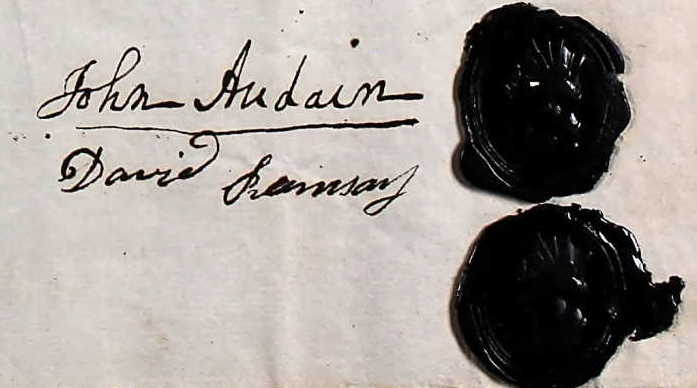 John Audain
David Ramsay